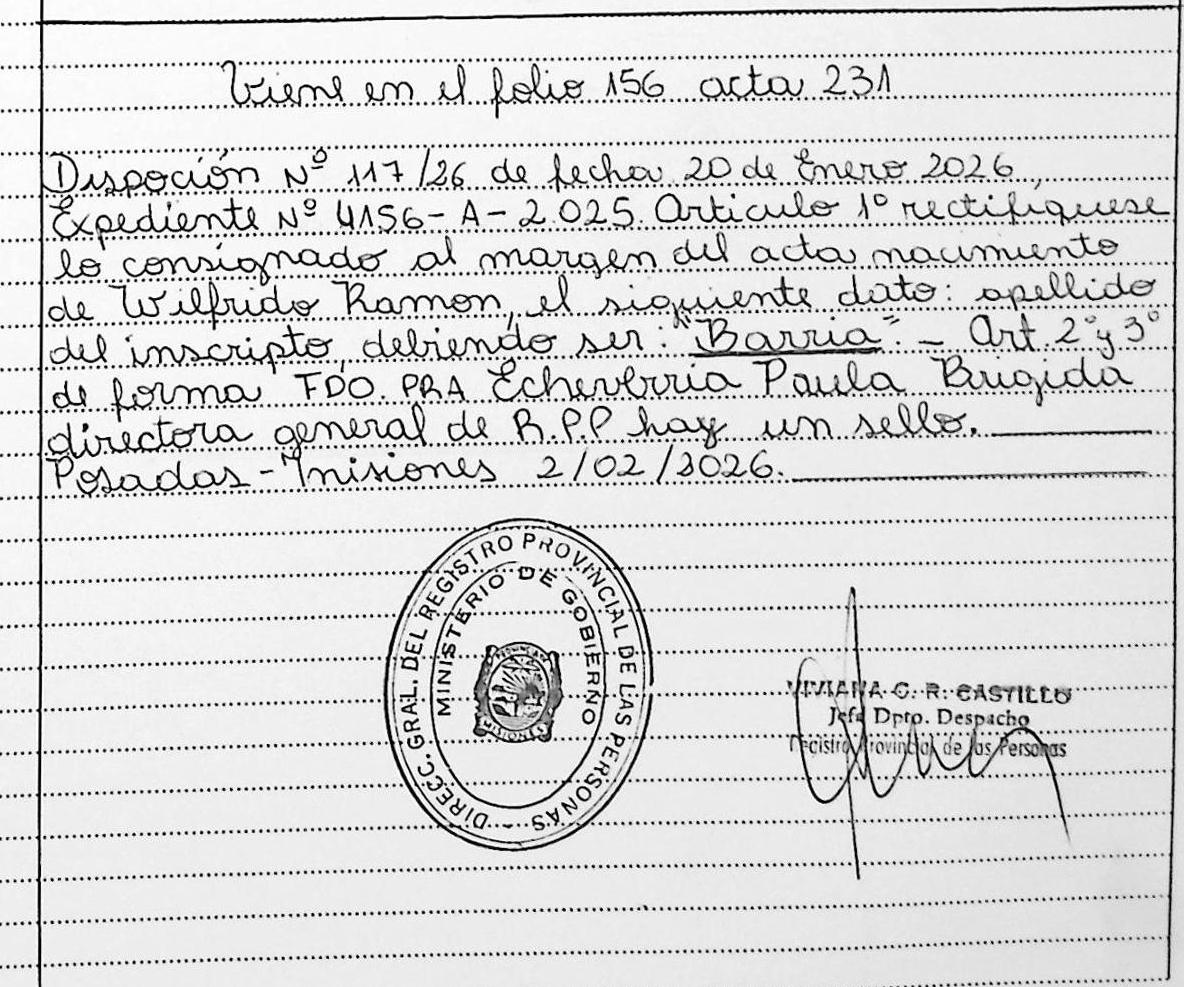 Viene en el folio 156 acta 231
Dispoción Nº 117/26 de fecha 20 de Enero 2026,
Expediente Nº 4156-A-2.025. Articulo 1º rectifiquese
lo consignado al margen del acta nacimiento
de Wilfrido Ramon, el siguiente dato: apellido
del inscripto, debiendo ser: "Barria". - Art. 2º y 3º
de forma FDO. PRA Echeverria Paula Brigida
directora general de R.P.P hay un sello.
Posadas - Misiones 2/02/2026.
DIRECC. GRAL. DEL REGISTRO PROVINCIAL DE LAS PERSONAS
MINISTERIO DE GOBIERNO
PROVINCIA DE
MISIONES
VIVIANA C. R. CASTILLO
Jefa Dpto. Despacho
Registro Provincial de las Personas